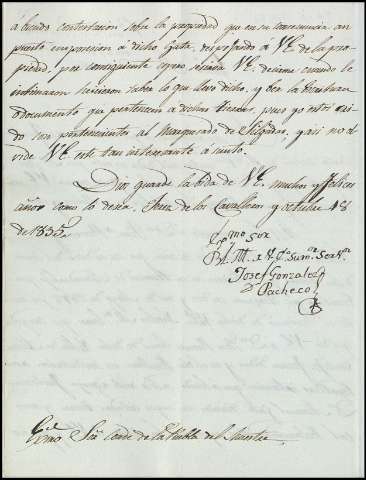 contestacion sobre la propiedad que en su consecuencia an
puesto en poseion a dicho Gata, despojando a VE de la pro
piedad, por consiguiente espero se sirva VE. decirme cuando le
hicieron saber lo que llevo dicho, y con la Escritura
o documento que pertenecen a dichas tierras, pues yo estoy
son pertenecientes al Marquesado de y asi no ol
vide VE este tan interesante asunto.
Dios guarde la vida de VE. muchos y felices
años como le deseo. Jerez de los Cavalleros y octubre 18
de 1835.
Exmo Sor
B. L. M. a V. E. su mor. Servor
Josef Gonzalez
Pacheco
Exmo Sor Conde de la Puebla del Maestre